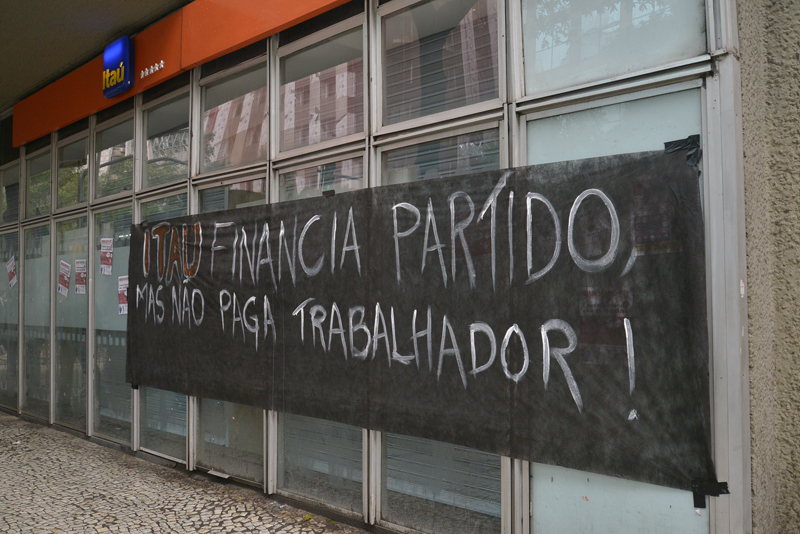 Itaú
ITAU FINANCIA PARTIDO,
MAS NÃO PAGA TRABALHADOR!